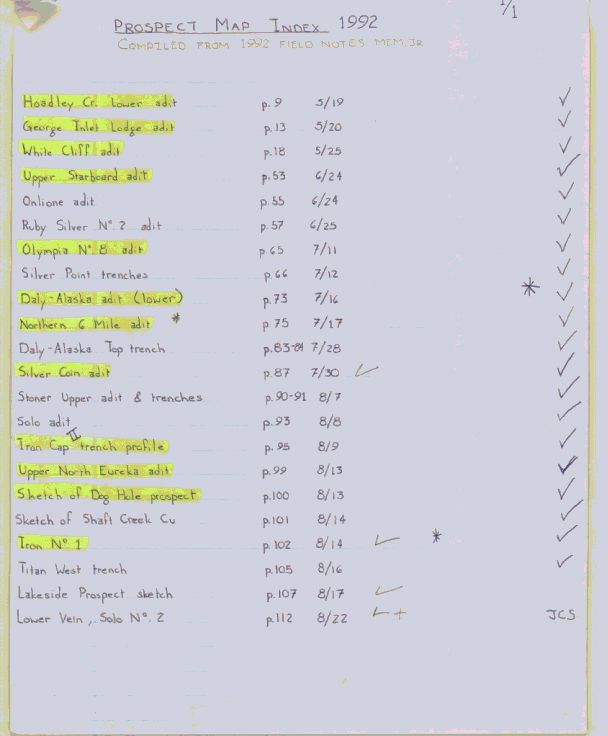 1/1
PROSPECT MAP INDEX 1992
COMPILED FROM 1992 FIELD NOTES MEM, JR
Hoadley Cr. Lower adit p. 9 5/19 ✓
George Inlet Lodge adit p. 13 5/20 ✓
White Cliff adit p. 18 5/25 ✓
Upper Starboard adit p. 53 6/24 ✓
Onlione adit p. 55 6/24 ✓
Ruby Silver Nº. 2 adit p. 57 6/25 ✓
Olympia Nº. 8 adit p. 65 7/11 ✓
Silver Point trenches p. 66 7/12 ✓
Daly-Alaska adit (lower) p. 73 7/16 * ✓
Northern 6 Mile adit * p 75 7/17 ✓
Daly-Alaska Top trench p. 83-84 7/28 ✓
Silver Coin adit p. 87 7/30 ✓ ✓
Stoner Upper adit & trenches p. 90-91 8/7 ✓
Solo adit p. 93 8/8 ✓
Iron Cap II trench profile p. 95 8/9 ✓
Upper North Eureka adit p. 99 8/13 ✓
Sketch of Dog Hole prospect p. 100 8/13 ✓
Sketch of Shaft Creek Cu p. 101 8/14 ✓
Iron Nº 1 p. 102 8/14 ✓ * ✓
Titan West trench p. 105 8/16 ✓
Lakeside Prospect sketch p. 107 8/17 ✓
Lower Vein, Solo Nº. 2 p. 112 8/22 ✓ + JCS